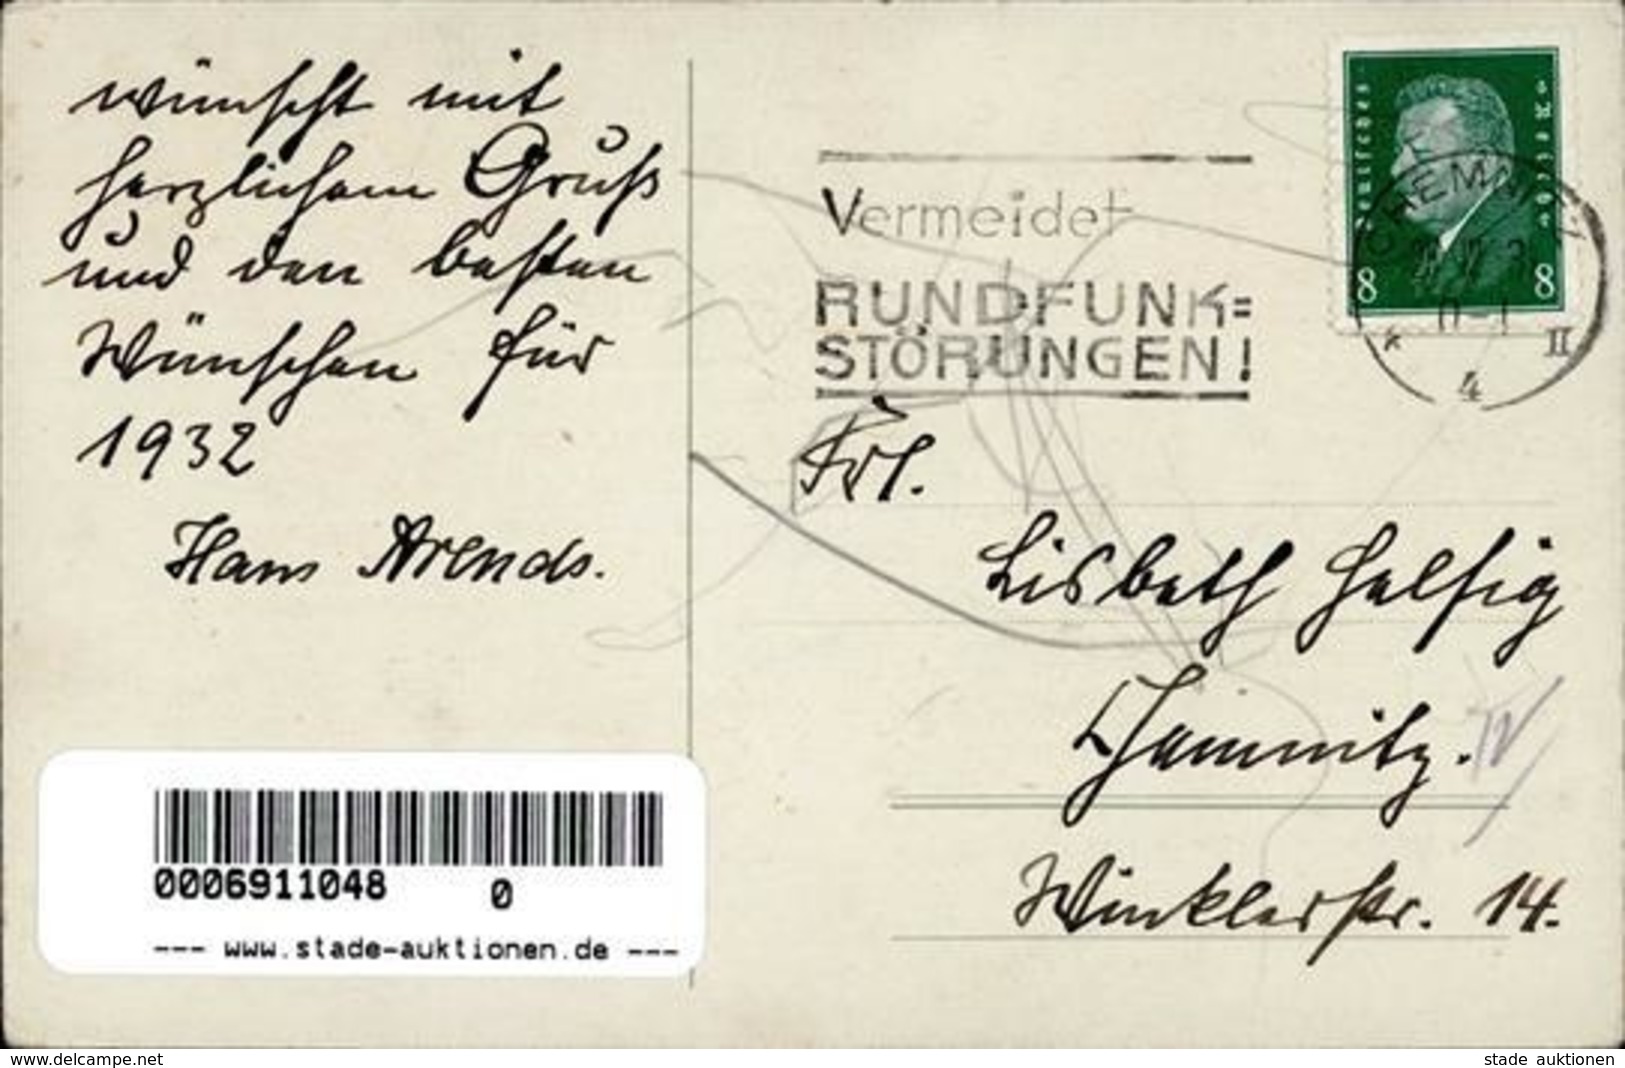 wünscht mit
herzlichem Gruß
und den besten
Wünschen für
1932
Hans Arends.
Vermeidet
RUNDFUNK=
STÖRUNGEN!
Deutsches Reich
8 8
CHEMNITZ
* 4 II
Frl.
Lisbeth Helfig
Chemnitz. IV
Winklerstr. 14.
0006911048 0
--- www.stade-auktionen.de ---
www.delcampe.net
stade auktionen